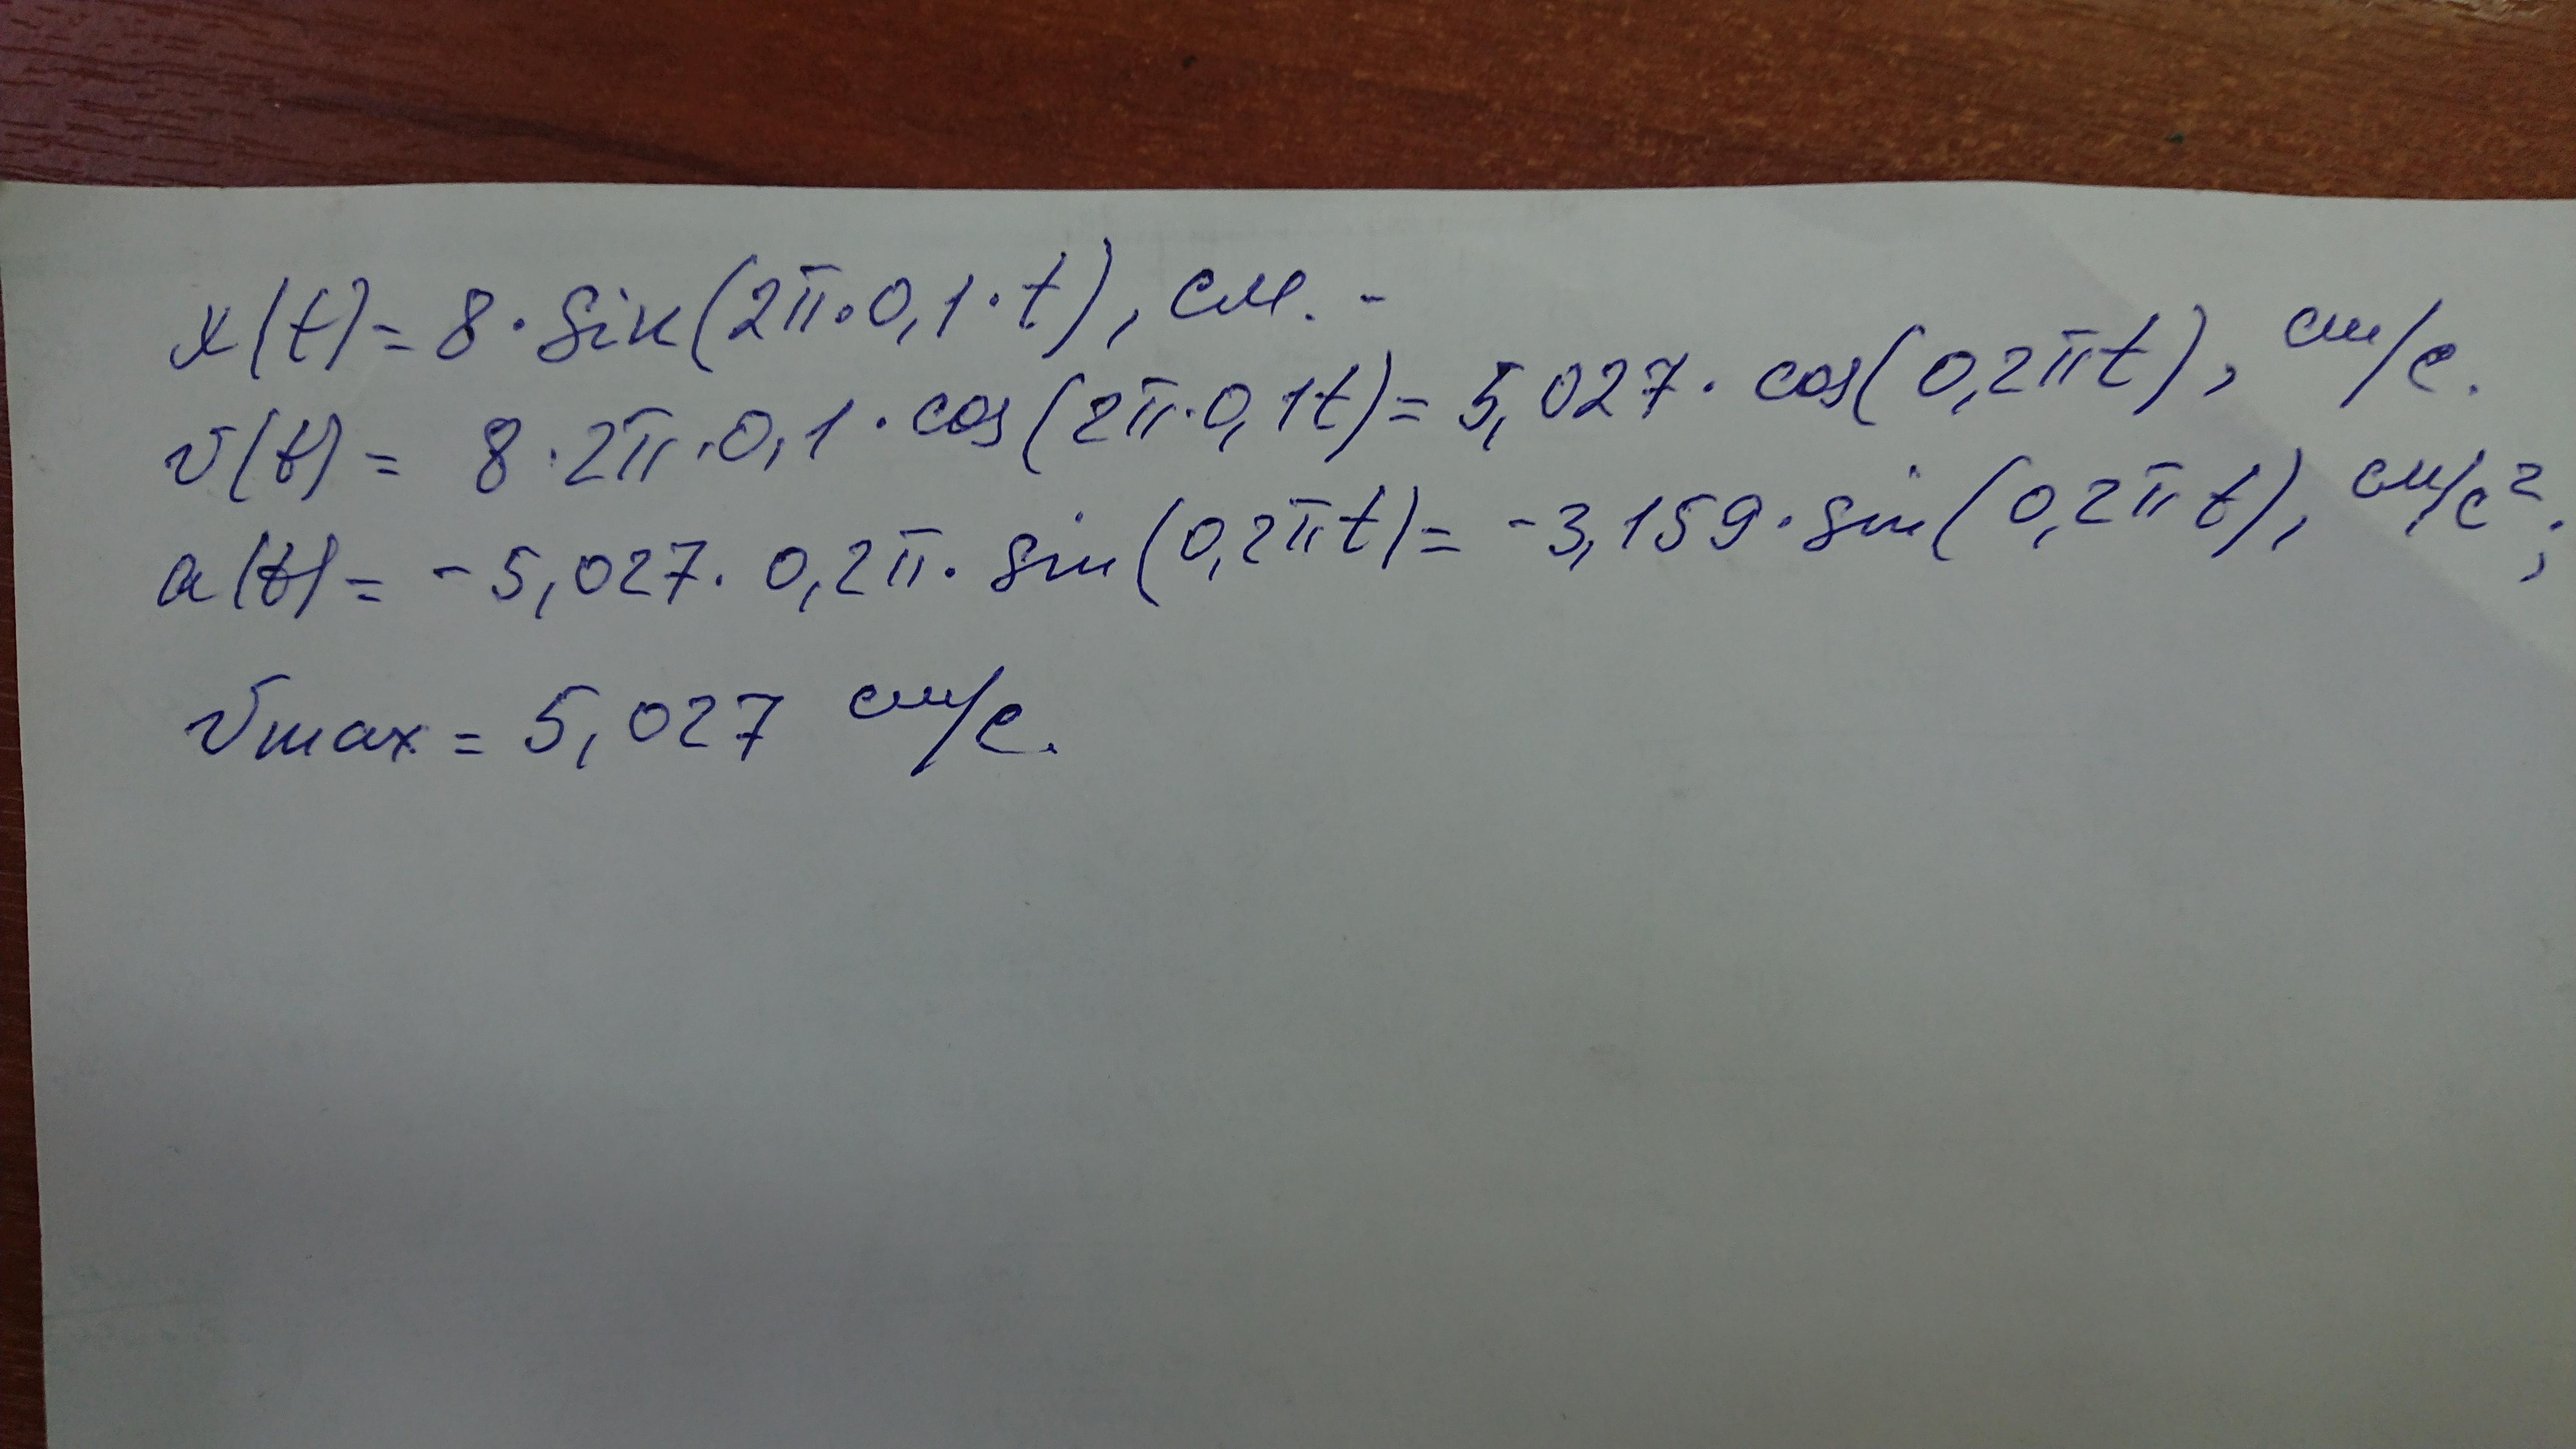 x(t)= 8·sin(2π·0,1·t), см. -
v(t)= 8·2π·0,1·cos(2π·0,1t)= 5,027·cos(0,2πt), см/с.
a(t)= -5,027·0,2π·sin(0,2πt)= -3,159·sin(0,2πt), см/с²;
vmax = 5,027 см/с.